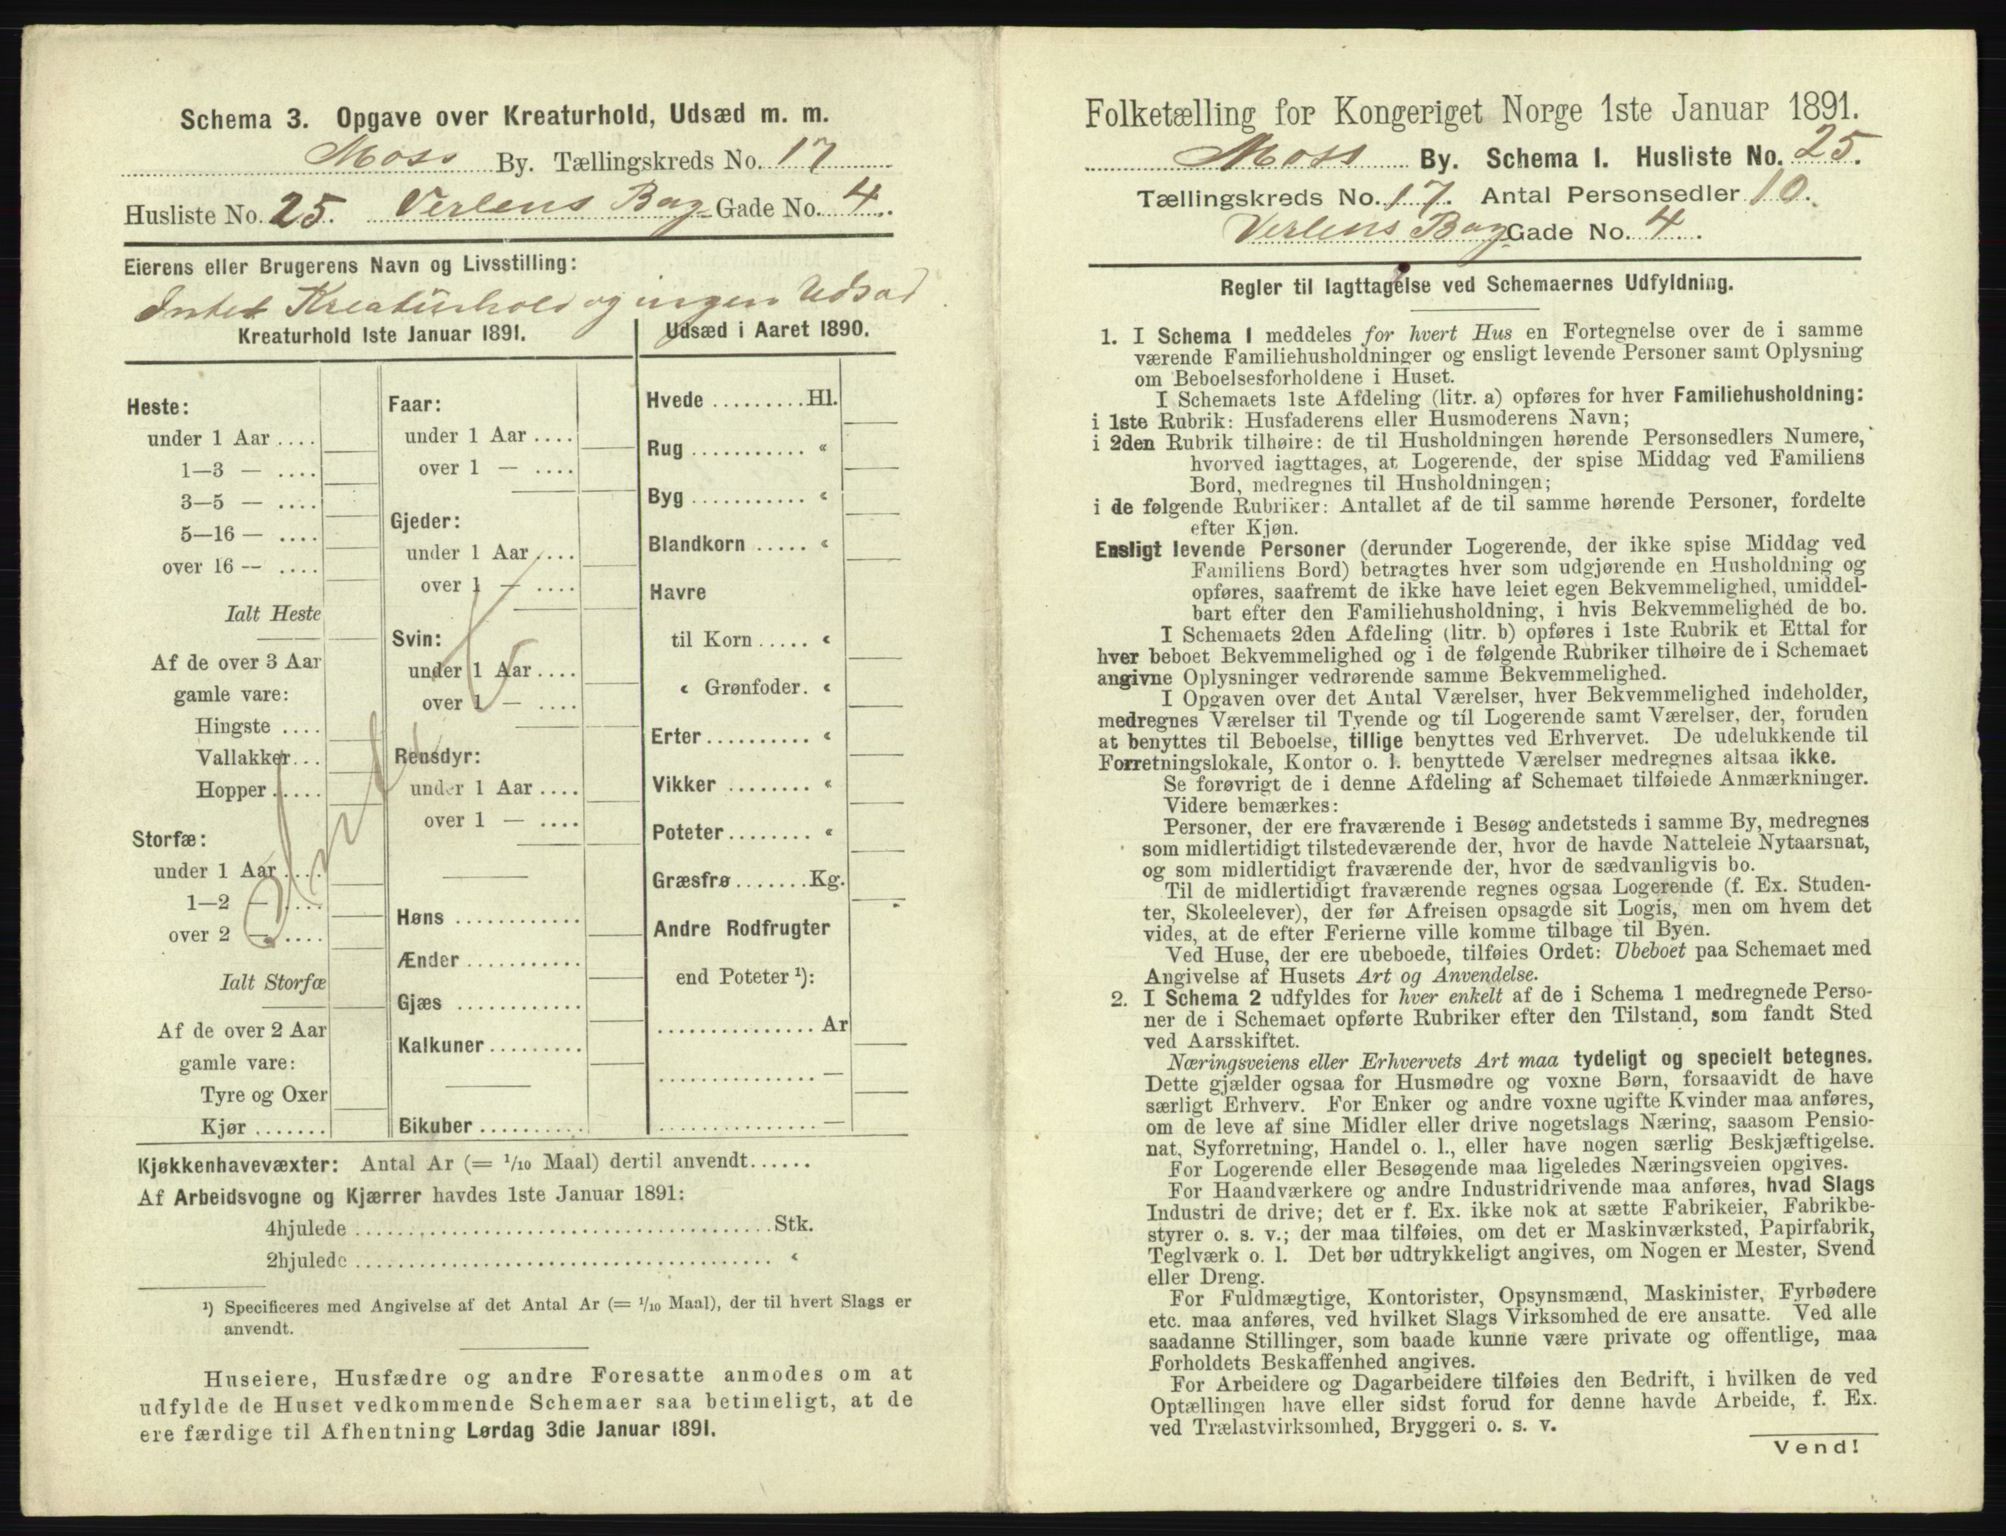 Schema 3. Opgave over Kreaturhold, Udsæd m. m.
Moss By. Tællingskreds No. 17
Husliste No. 25. Verlens Bag-Gade No. 4.
Eierens eller Brugerens Navn og Livsstilling:
Intet Kreaturhold og ingen Udsæd.
Kreaturhold 1ste Januar 1891.
Heste:
under 1 Aar ....
1—3 — ....
3—5 — ....
5—16 — ....
over 16 — ....
Ialt Heste
Af de over 3 Aar
gamle vare:
Hingste ....
Vallakker...
Hopper .....
Storfæ:
under 1 Aar ....
1—2 — ....
over 2 — ....
Ialt Storfæ
Af de over 2 Aar
gamle vare:
Tyre og Oxer
Kjør .......
Faar:
under 1 Aar ....
over 1 — ....
Gjeder:
under 1 Aar ....
over 1 — ....
Svin:
under 1 Aar ....
over 1 — ....
Rensdyr:
under 1 Aar ....
over 1 — ....
Høns ............
Ænder ...........
Gjæs ............
Kalkuner .........
Bikuber ..........
Intet
Udsæd i Aaret 1890.
Hvede .........Hl.
Rug ........... «
Byg ........... «
Blandkorn ..... «
Havre
til Korn ..... «
« Grønfoder. «
Erter .......... «
Vikker ........ «
Poteter ........ «
Græsfrø .......Kg.
Andre Rodfrugter
end Poteter ¹):
............... Ar
............... —
............... —
Kjøkkenhavevæxter: Antal Ar (= 1/10 Maal) dertil anvendt......
Af Arbeidsvogne og Kjærrer havdes 1ste Januar 1891:
4hjulede ........................................Stk.
2hjulede ........................................ «
¹) Specificeres med Angivelse af det Antal Ar (= 1/10 Maal), der til hvert Slags er
anvendt.
Huseiere, Husfædre og andre Foresatte anmodes om at
udfylde de Huset vedkommende Schemaer saa betimeligt, at de
ere færdige til Afhentning Lørdag 3die Januar 1891.
Folketælling for Kongeriget Norge 1ste Januar 1891.
Moss By. Schema 1. Husliste No. 25.
Tællingskreds No. 17. Antal Personsedler 10.
Verlens Bag-Gade No. 4.
Regler til Iagttagelse ved Schemaernes Udfyldning.
1. I Schema 1 meddeles for hvert Hus en Fortegnelse over de i samme
værende Familiehusholdninger og ensligt levende Personer samt Oplysning
om Beboelsesforholdene i Huset.
I Schemaets 1ste Afdeling (litr. a) opføres for hver Familiehusholdning:
i 1ste Rubrik: Husfaderens eller Husmoderens Navn;
i 2den Rubrik tilhøire: de til Husholdningen hørende Personsedlers Numere,
hvorved iagttages, at Logerende, der spise Middag ved Familiens
Bord, medregnes til Husholdningen;
i de følgende Rubriker: Antallet af de til samme hørende Personer, fordelte
efter Kjøn.
Ensligt levende Personer (derunder Logerende, der ikke spise Middag ved
Familiens Bord) betragtes hver som udgjørende en Husholdning og
opføres, saafremt de ikke have leiet egen Bekvemmelighed, umiddel-
bart efter den Familiehusholdning, i hvis Bekvemmelighed de bo.
I Schemaets 2den Afdeling (litr. b) opføres i 1ste Rubrik et Ettal for
hver beboet Bekvemmelighed og i de følgende Rubriker tilhøire de i Schemaet
angivne Oplysninger vedrørende samme Bekvemmelighed.
I Opgaven over det Antal Værelser, hver Bekvemmelighed indeholder,
medregnes Værelser til Tyende og til Logerende samt Værelser, der, foruden
at benyttes til Beboelse, tillige benyttes ved Erhvervet. De udelukkende til
Forretningslokale, Kontor o. l. benyttede Værelser medregnes altsaa ikke.
Se forøvrigt de i denne Afdeling af Schemaet tilføiede Anmærkninger.
Videre bemærkes:
Personer, der ere fraværende i Besøg andetsteds i samme By, medregnes
som midlertidigt tilstedeværende der, hvor de havde Natteleie Nytaarsnat,
og som midlertidigt fraværende der, hvor de sædvanligvis bo.
Til de midlertidigt fraværende regnes ogsaa Logerende (f. Ex. Studen-
ter, Skoleelever), der før Afreisen opsagde sit Logis, men om hvem det
vides, at de efter Ferierne ville komme tilbage til Byen.
Ved Huse, der ere ubeboede, tilføies Ordet: Ubeboet paa Schemaet med
Angivelse af Husets Art og Anvendelse.
2. I Schema 2 udfyldes for hver enkelt af de i Schema 1 medregnede Perso-
ner de i Schemaet opførte Rubriker efter den Tilstand, som fandt Sted
ved Aarsskiftet.
Næringsveiens eller Erhvervets Art maa tydeligt og specielt betegnes.
Dette gjælder ogsaa for Husmødre og voxne Børn, forsaavidt de have
særligt Erhverv. For Enker og andre voxne ugifte Kvinder maa anføres,
om de leve af sine Midler eller drive nogetslags Næring, saasom Pensio-
nat, Syforretning, Handel o. l., eller have nogen særlig Beskjæftigelse.
For Logerende eller Besøgende maa ligeledes Næringsveien opgives.
For Haandværkere og andre Industridrivende maa anføres, hvad Slags
Industri de drive; det er f. Ex. ikke nok at sætte Fabrikeier, Fabrikbe-
styrer o. s. v.; der maa tilføies, om det er Maskinværksted, Papirfabrik,
Teglværk o. l. Det bør udtrykkeligt angives, om Nogen er Mester, Svend
eller Dreng.
For Fuldmægtige, Kontorister, Opsynsmænd, Maskinister, Fyrbødere
etc. maa anføres, ved hvilket Slags Virksomhed de ere ansatte. Ved alle
saadanne Stillinger, som baade kunne være private og offentlige, maa
Forholdets Beskaffenhed angives.
For Arbeidere og Dagarbeidere tilføies den Bedrift, i hvilken de ved
Optællingen have eller sidst forud for denne havde Arbeide, f. Ex.
ved Trælastvirksomhed, Bryggeri o. s. v.
Vend!